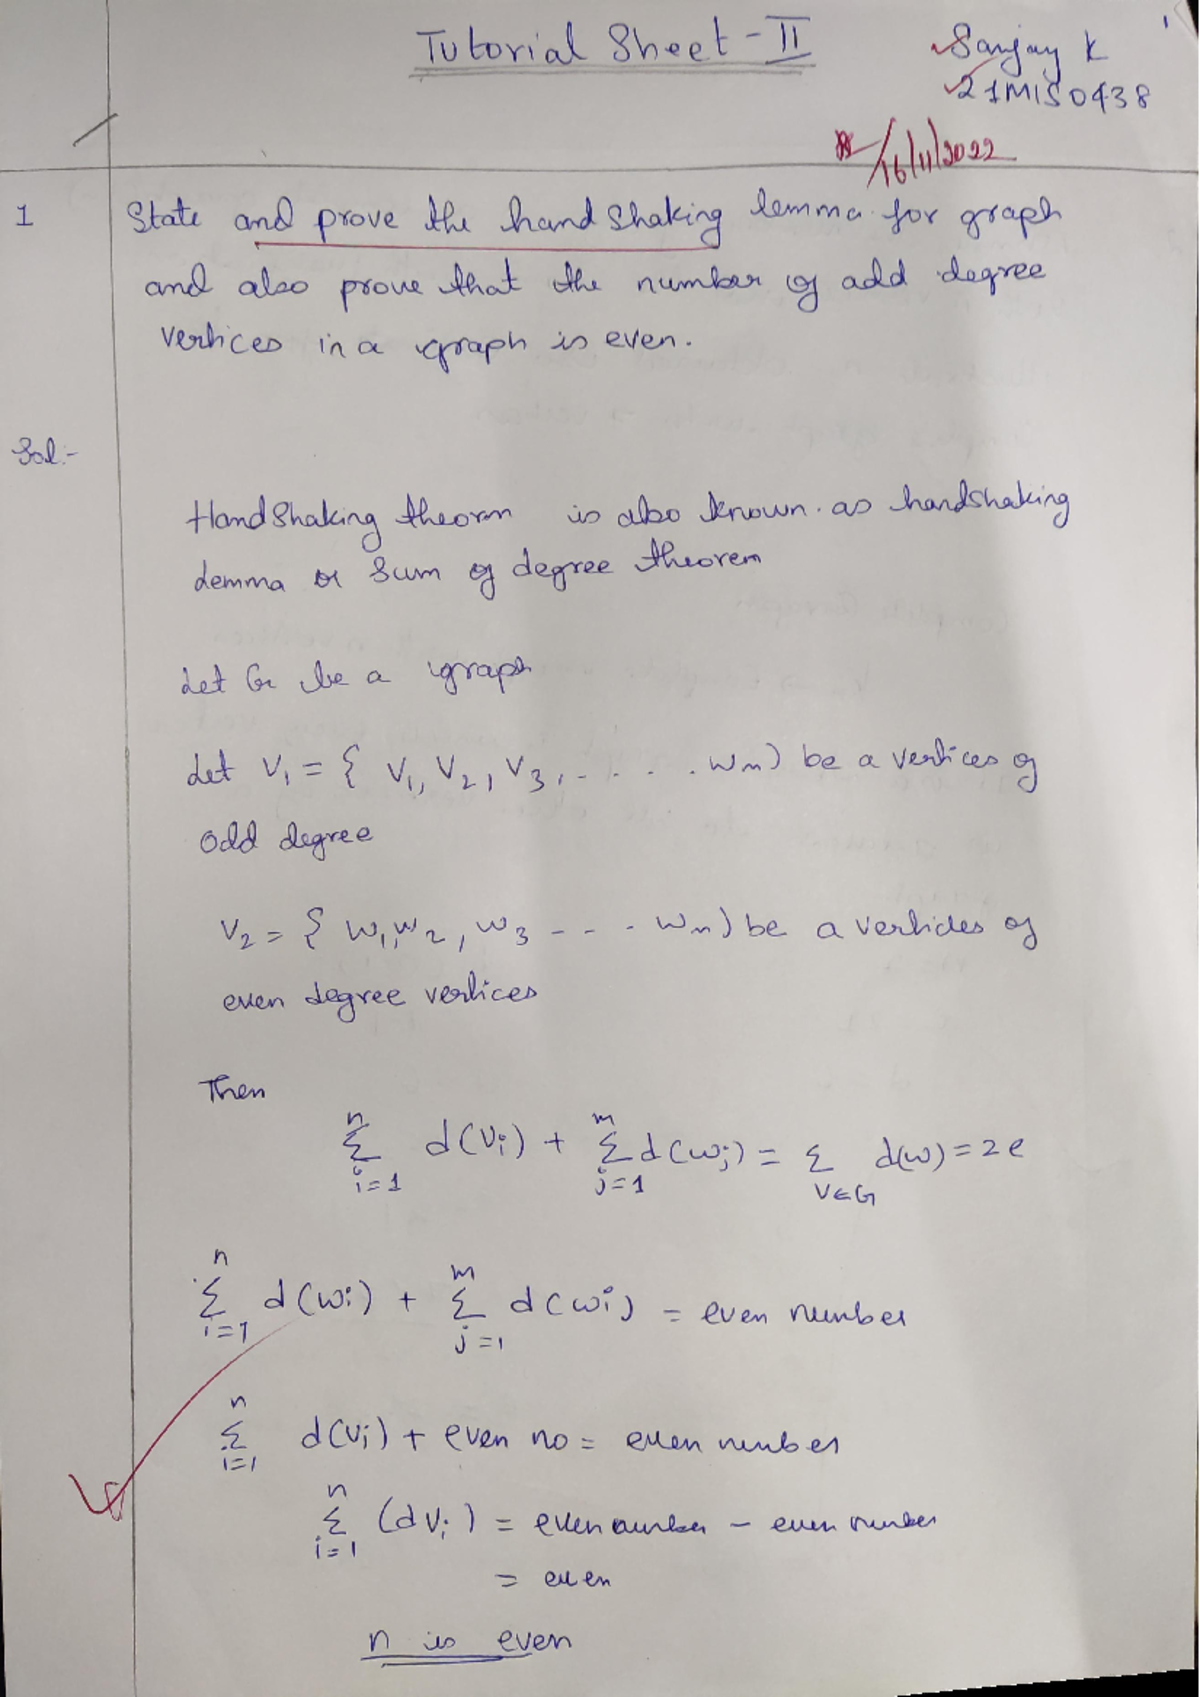 Tutorial Sheet - II
Sanjay K
21MIS0438
16/11/2022
1 State and prove the hand shaking lemma for graph
and also prove that the number of add degree
vertices in a graph is even.
Sol:-
Hand Shaking theorm is also known as handshaking
Lemma or Sum of degree theorem
Let G be a graph
Let V₁ = { V₁, V₂, V₃, - . . . . wn) be a vertices of
odd degree
V₂ = { w₁, w₂, w₃ - - - . wn) be a verticles of
even degree vertices
Then
n Σ i=1 d(vi) + m Σ j=1 d(wj) = Σ V∈G d(w) = 2e
n Σ i=1 d(wi) + m Σ j=1 d(wi) = even number
n Σ i=1 d(vi) + even no = even number
n Σ i=1 (dvi) = even number - even number
= even
n is even